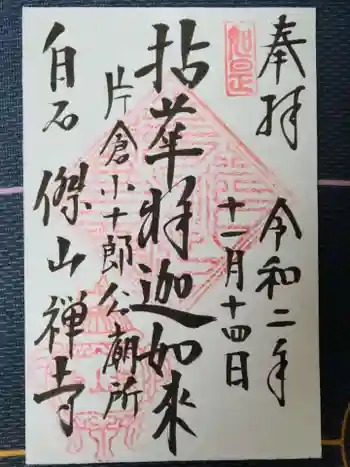 奉拝
令和二年
十一月十四日
如是
拈華釋迦如来
片倉小十郎公廟所
白石
傑山禅寺